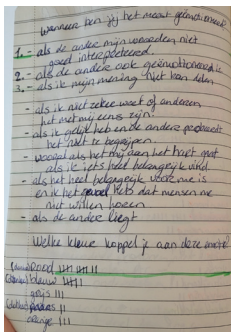 wanneer ben jij het meest geëmotioneerd
1. - als de ander mijn woorden niet
goed interpreteerd.
2. - als de ander ook geëmotioneerd is
3. - als ik mijn mening niet kan delen
- als ik niet zeker weet of anderen
het met mij eens zijn.
- als ik gelijk heb en de andere
het niet te begrijpen
- vooral als het mij aan het hart gaat
als ik iets heel belangrijk vind
- als het heel belangrijk voor me is
en ik het gevoel heb dat mensen me
niet willen horen
- als de ander liegt
Welke kleur koppel je aan deze
rood
blauw
grijs III
paars II
oranje III